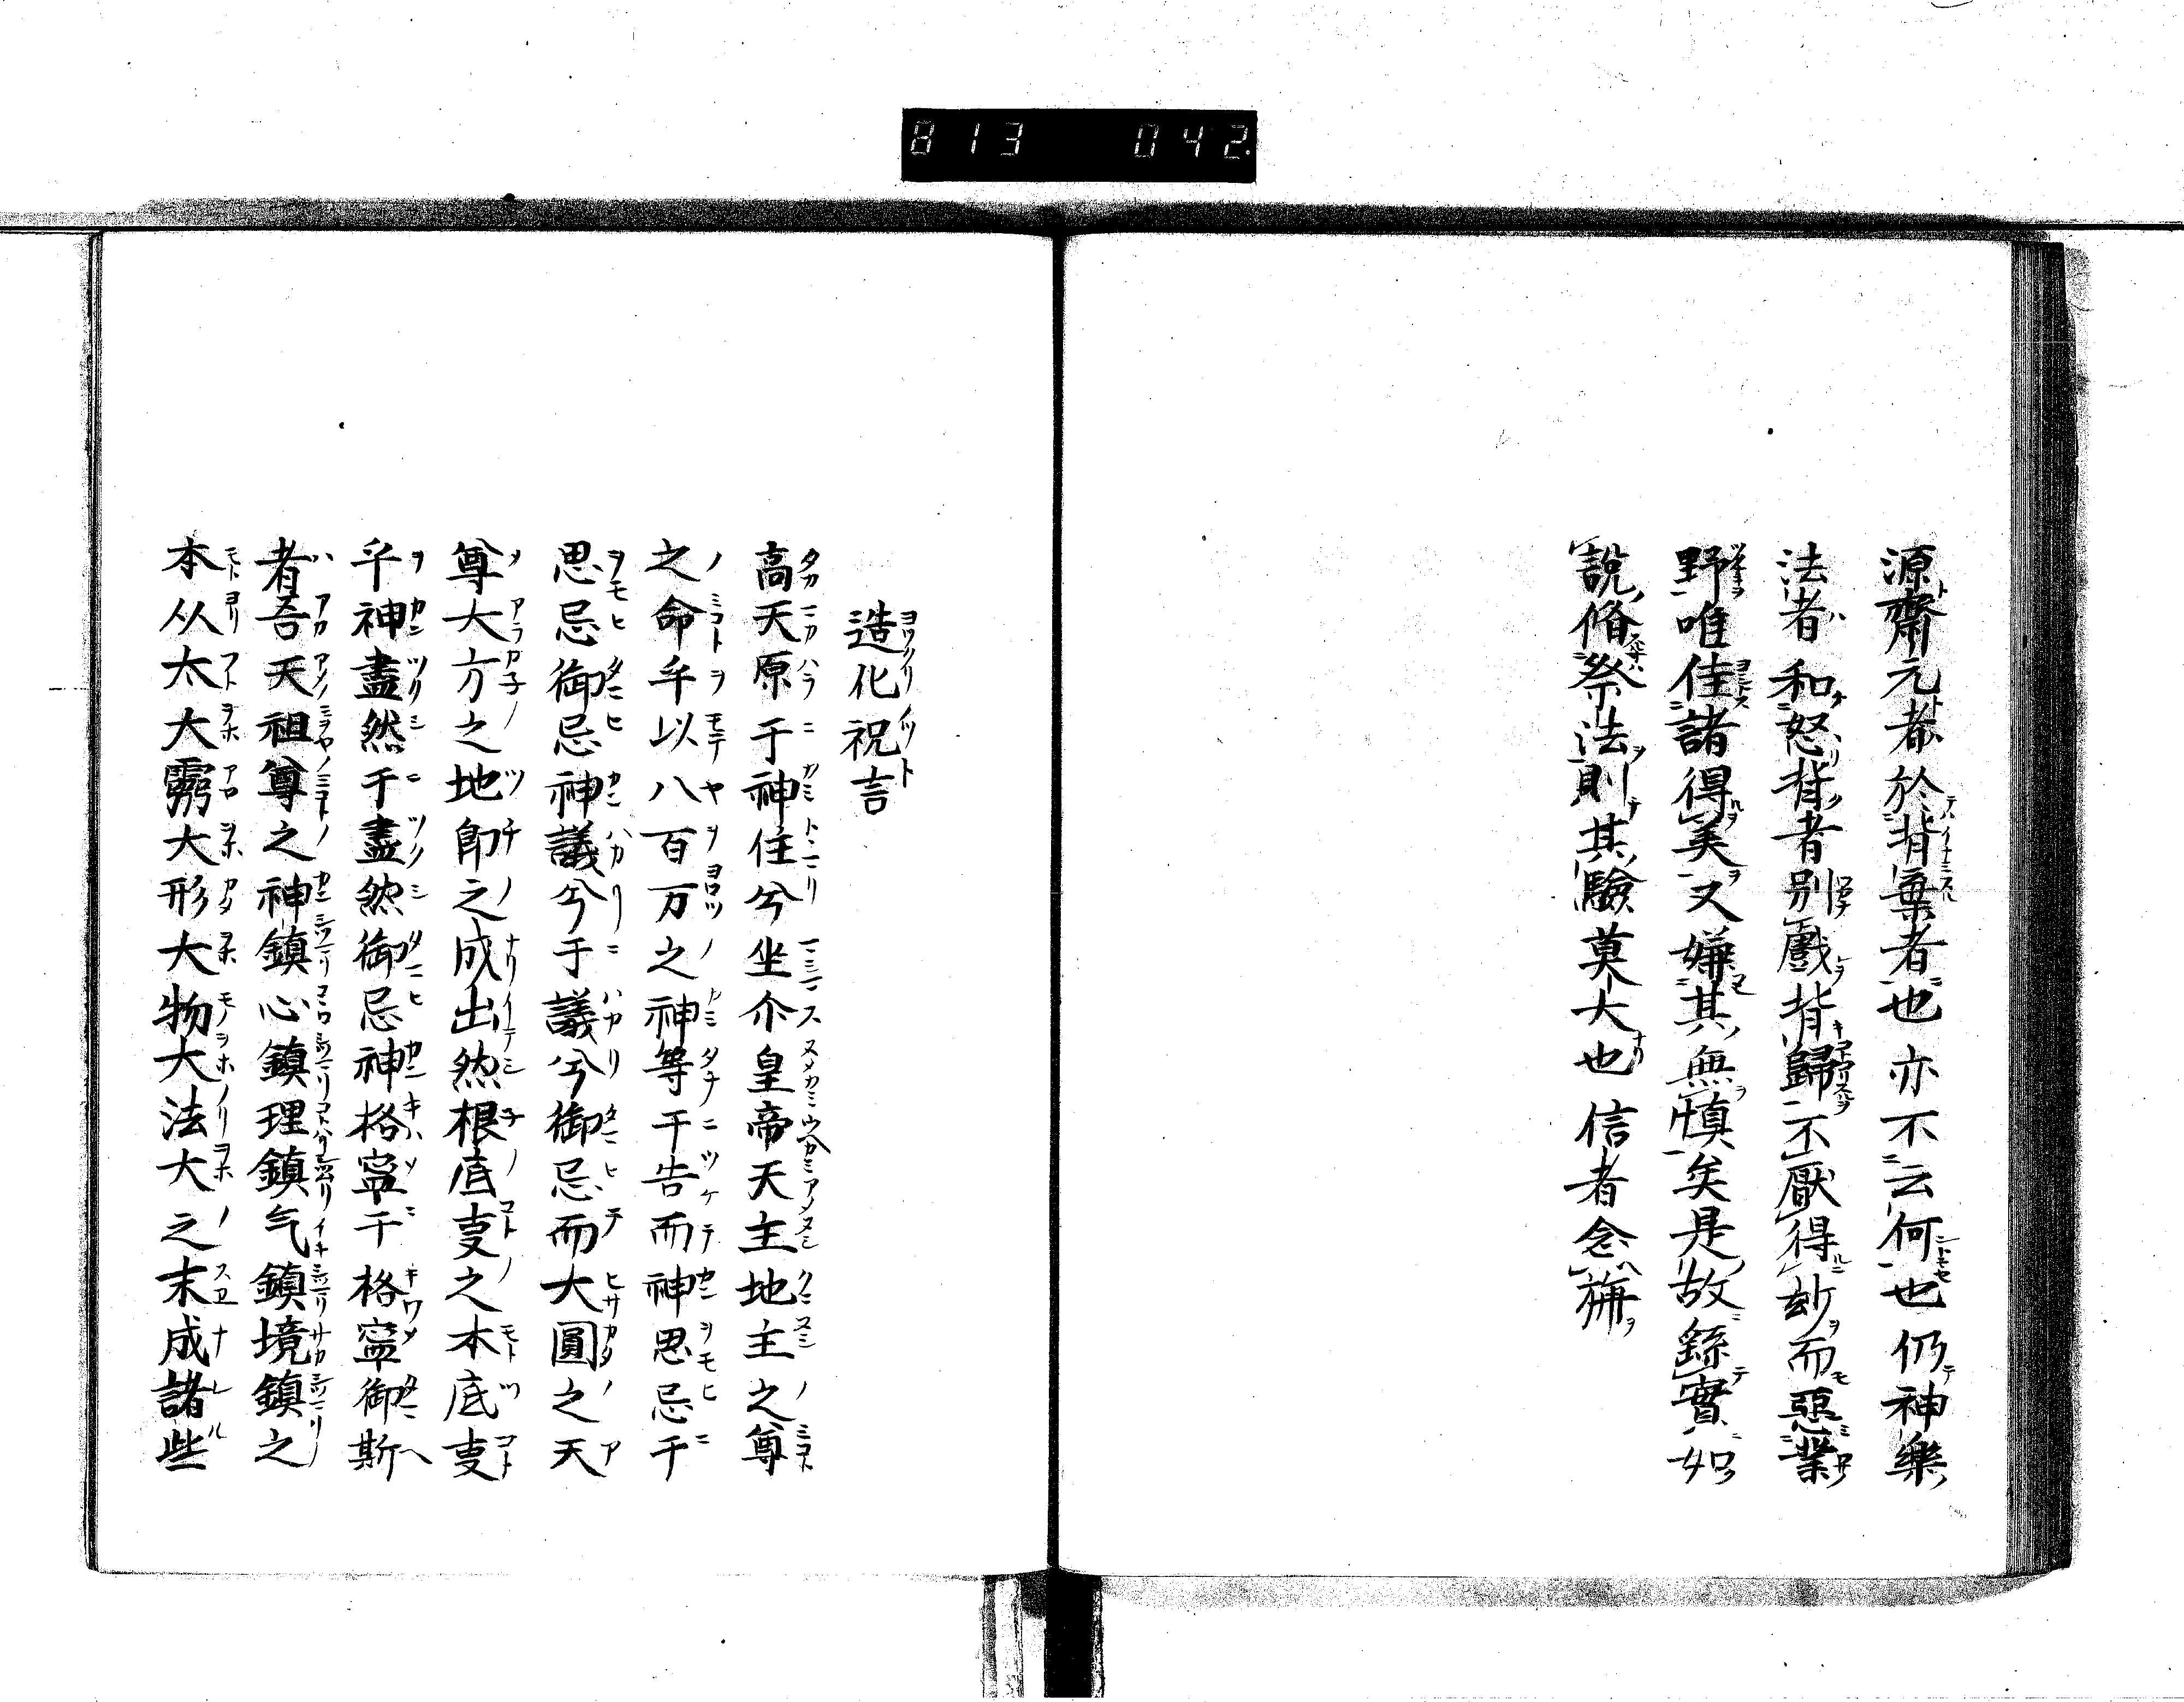 813 042.
源齋元都於背棄者也亦不云何也仍神樂
法者和怒背者別戲背歸不厭得玅而惡業
野唯住諸得美又嫌其無慎矣是故繇實如
說脩祭法則其驗莫大也信者念旃
造化祝言
高天原于神住兮坐介皇帝天主地主之尊
之命乎以八百万之神等于告而神思忌于
思忌御忌神議兮于議兮御忌而大圓之天
尊大方之地即之成出然根底叓之本底叓
乎神盡然于盡然御忌神格寧于格寧御斯
者吾天祖尊之神鎮心鎮理鎮气鎮境鎮之
本从太大大形大物大法大之末成諸些